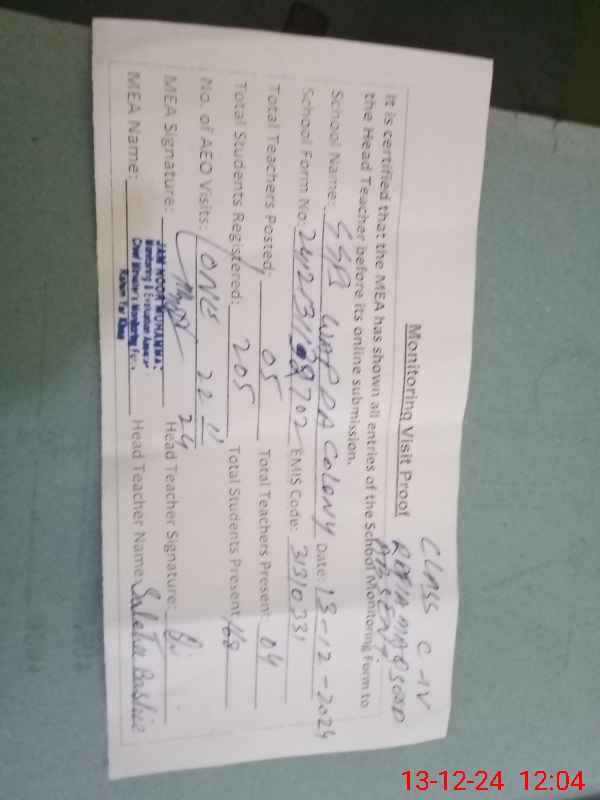 CLASS C-IV
ABSENT
Monitoring Visit Proof
It is certified that the MEA has shown all entries of the School Monitoring Form to
the Head Teacher before its online submission.
School Name: WAPDA Colony Date: 13-12-2024
School Form No: EMIS Code: 31310331
Total Teachers Posted: 05 Total Teachers Present: 04
Total Students Registered: 205 Total Students Present: 168
No. of AEO Visits: ONE 22 11 24
MEA Signature: Head Teacher Signature:
MEA Name: Head Teacher Name:
JAM NOOR MUHAMMAD
Monitoring & Evaluation
Chief Minister's Monitoring
Rahim Yar Khan
13-12-24 12:04